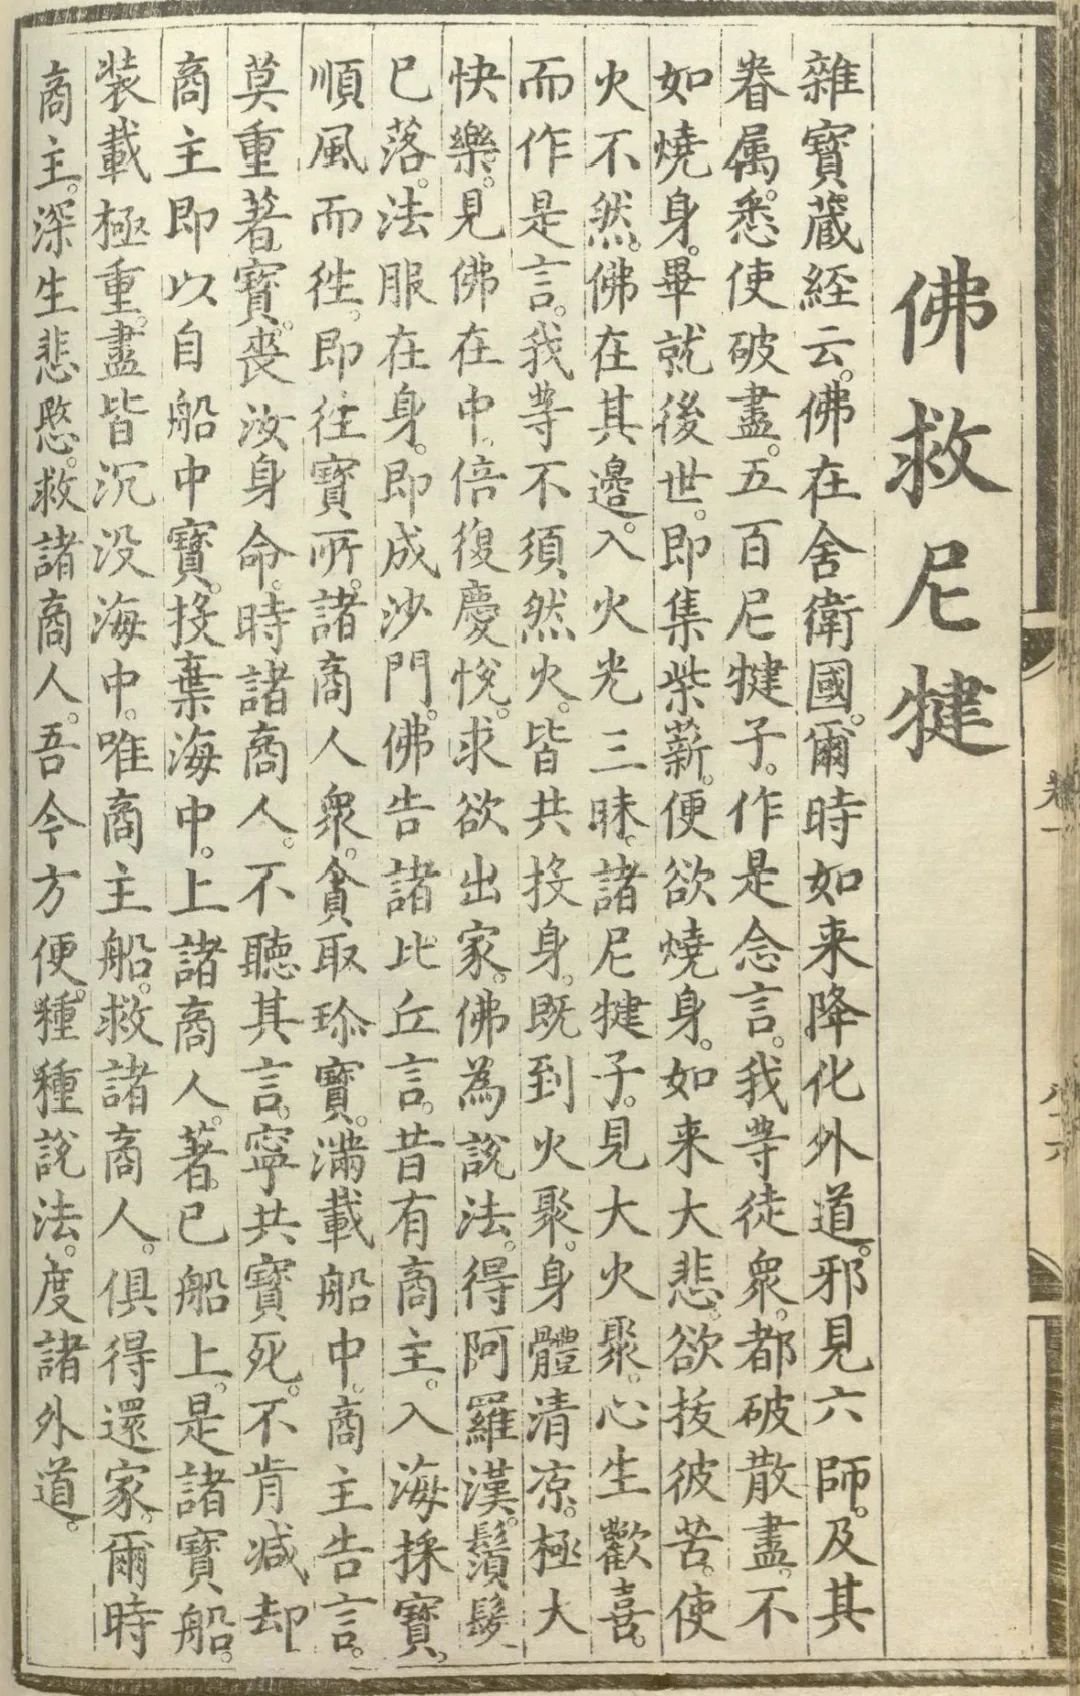 佛救尼犍
雜寶蔵經云。佛在舍衛國。爾時如来降化外道。邪見六師。及其
眷属。悉使破盡。五百尼犍子。作是念言。我等徒衆。都破散盡。不
如燒身。畢就後世。即集柴薪。便欲燒身。如来大悲。欲拔彼苦。使
火不然。佛在其邊。入火光三昧。諸尼犍子。見大火聚。心生歡喜。
而作是言。我等不須然火。皆共投身。既到火聚。身體清凉。極大
快樂。見佛在中。倍復慶悅。求欲出家。佛為說法。得阿羅漢。鬚髮
已落。法服在身。即成沙門。佛告諸比丘言。昔有商主。入海採寶。
順風而徃。即往寶所。諸商人衆。貪取珎寶。滿載船中。商主告言。
莫重著寶。喪汝身命。時諸商人。不聽其言。寧共寶死。不肯减却
商主即以自船中寶。投棄海中。上諸商人。著已船上。是諸寶船。
装載極重。盡皆沉没海中。唯商主船。救諸商人。俱得還家。爾時
商主。深生悲愍。救諸商人。吾今方便。種種説法。度諸外道。
卷一